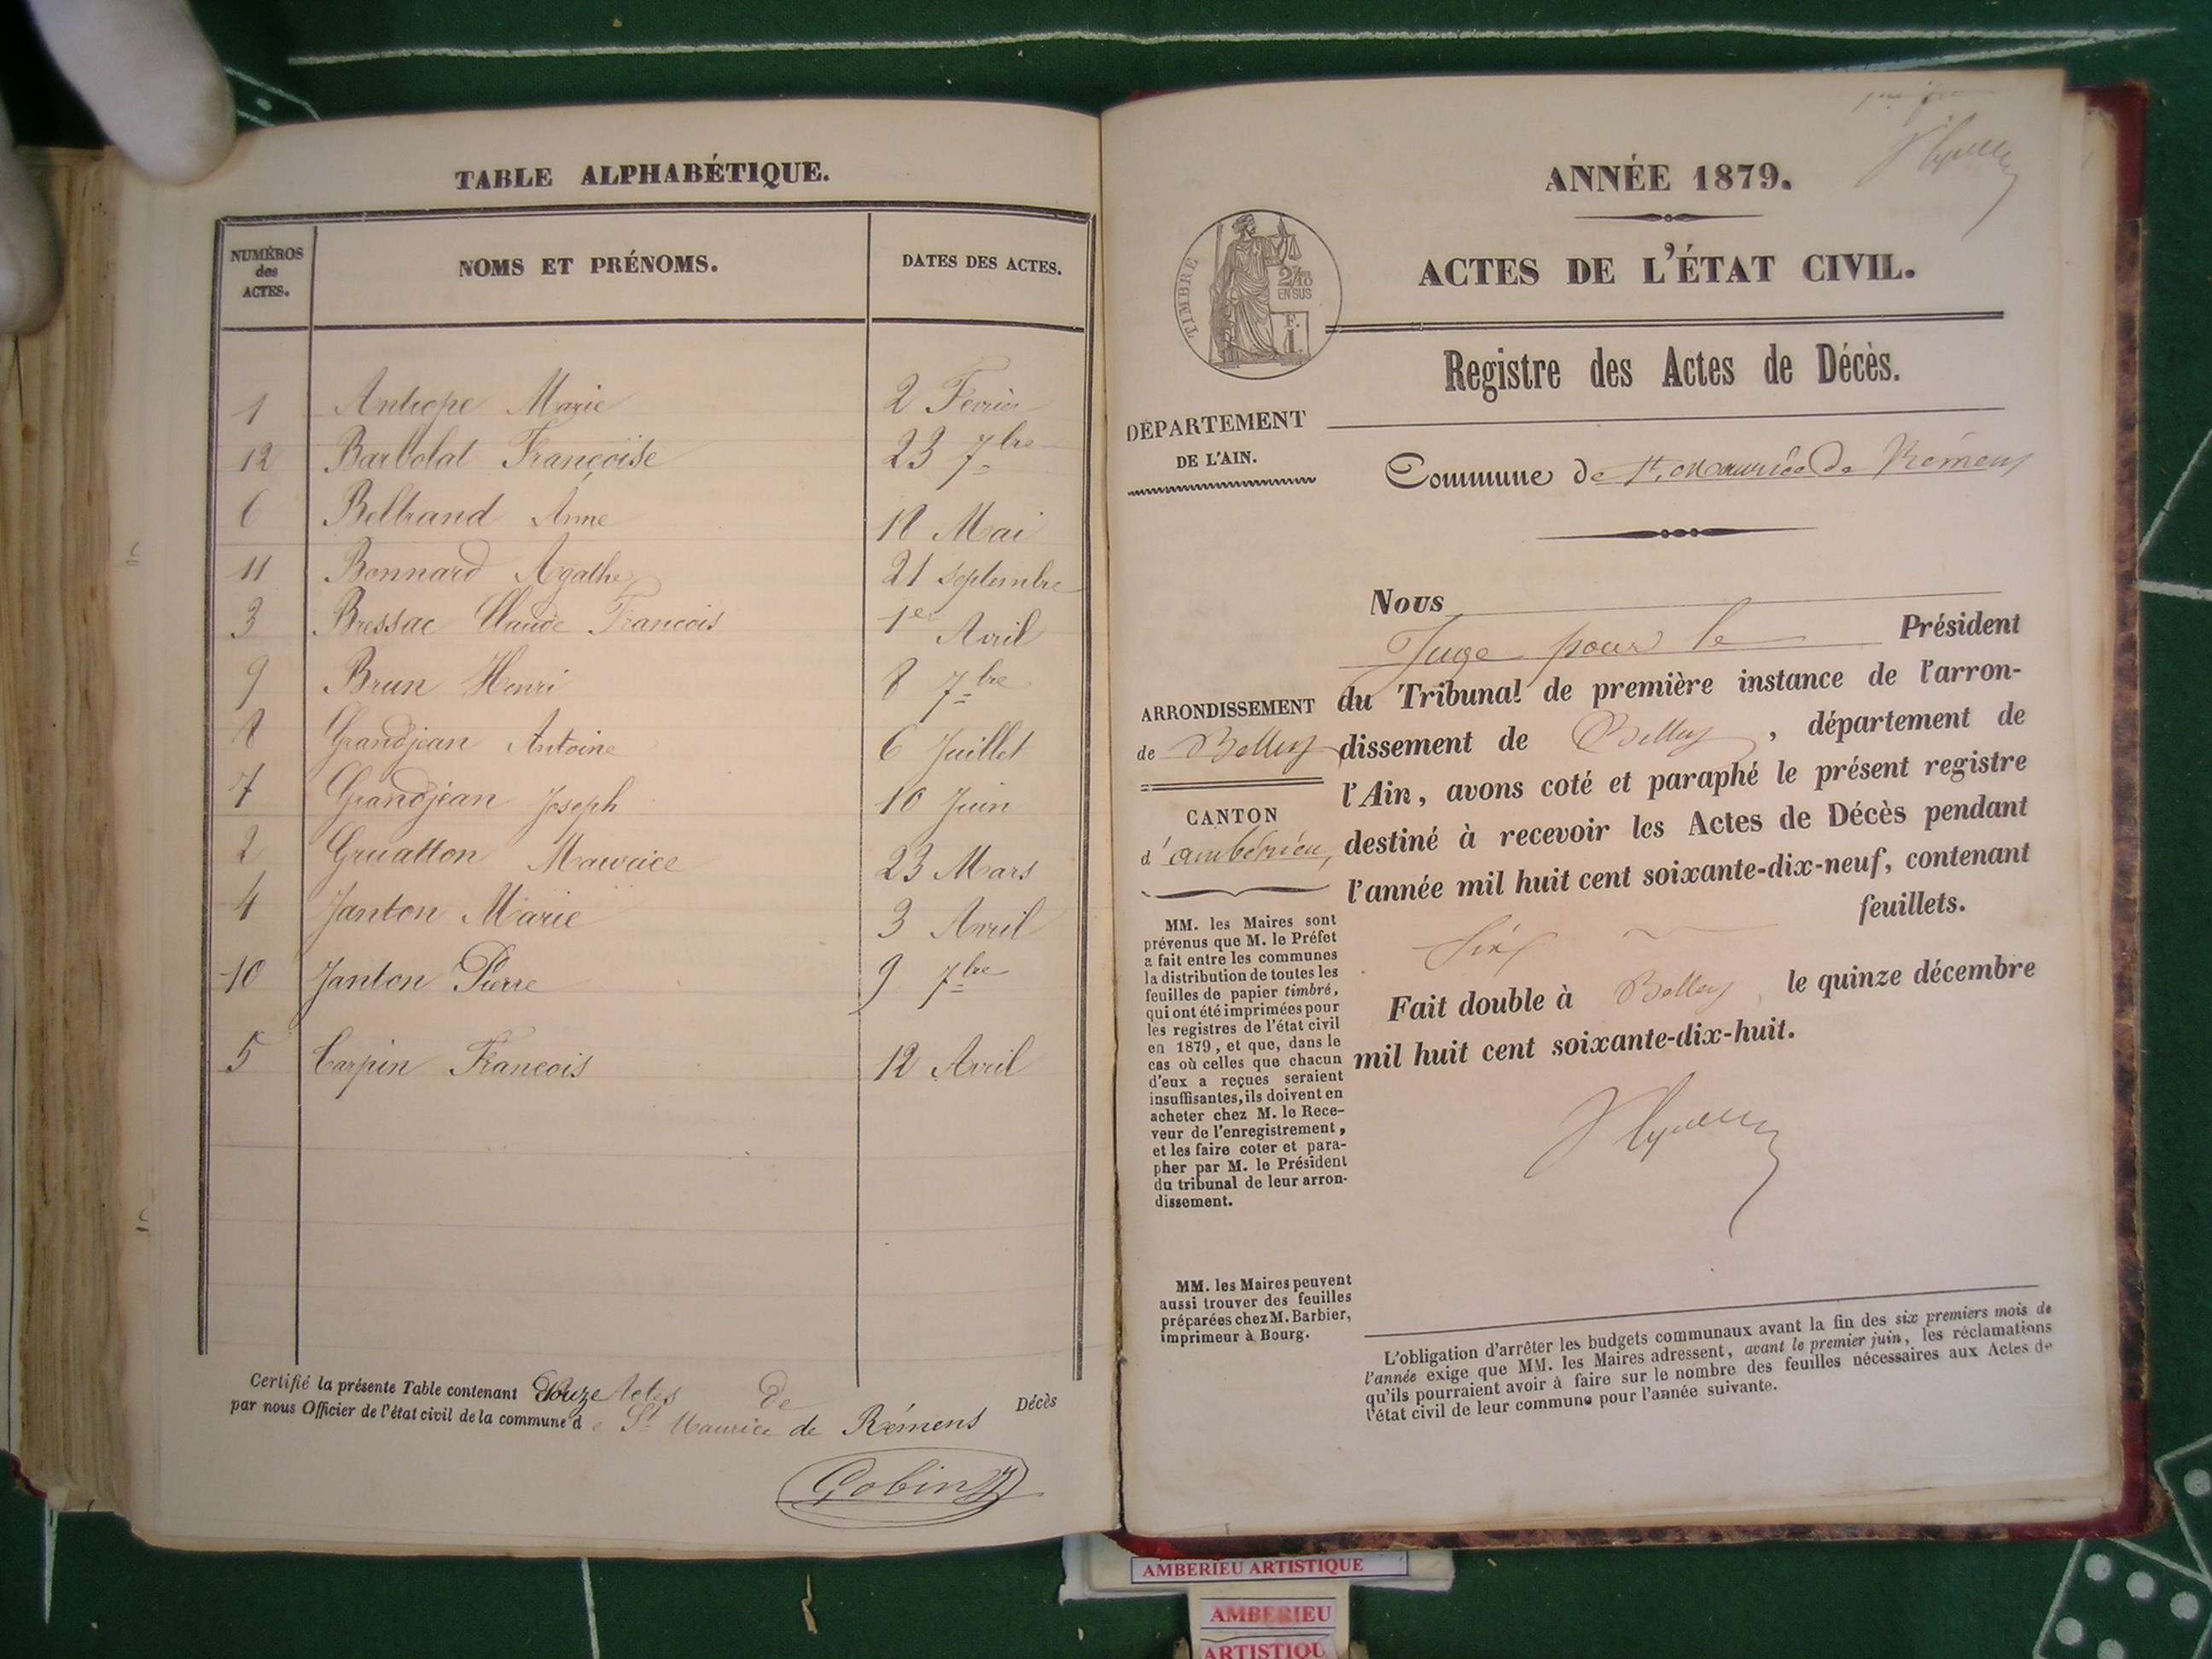 TABLE ALPHABÉTIQUE.
NUMÉROS des ACTES.
NOMS ET PRÉNOMS.
DATES DES ACTES.
1 Antiope Marie 2 Fevrier
12 Barbolat Françoise 23 7bre
6 Beltrand Anne 18 Mai
11 Bonnard Agathe 21 septembre
3 Bressac Claude Francois 1er Avril
9 Brun Henri 8 7bre
8 Grandjean Antoine 6 Juillet
7 Grandjean Joseph 10 Juin
2 Gruatton Maurice 23 Mars
4 Janton Marie 3 Avril
10 Janton Pierre 9 7bre
5 Carpin Francois 12 Avril
Certifié la présente Table contenant Douze Actes de Décès
par nous Officier de l'état civil de la commune d e St Maurice de Rémens
Gobin
ANNÉE 1879.
ACTES DE L'ÉTAT CIVIL.
TIMBRE
2/10 EN SUS
F. 1.
Registre des Actes de Décès.
DÉPARTEMENT
DE L'AIN.
Commune de St. Maurice de Rémens
Nous
Juge pour le Président
du Tribunal de première instance de l'arron-
dissement de Belley, département de
l'Ain, avons coté et paraphé le présent registre
destiné à recevoir les Actes de Décès pendant
l'année mil huit cent soixante-dix-neuf, contenant
feuillets.
Six
Fait double à Belley, le quinze décembre
mil huit cent soixante-dix-huit.
ARRONDISSEMENT
de Belley
CANTON
d'ambérieu,
MM. les Maires sont
prévenus que M. le Préfet
a fait entre les communes
la distribution de toutes les
feuilles de papier timbré,
qui ont été imprimées pour
les registres de l'état civil
en 1879, et que, dans le
cas où celles que chacun
d'eux a reçues seraient
insuffisantes, ils doivent en
acheter chez M. le Rece-
veur de l'enregistrement,
et les faire coter et para-
pher par M. le Président
du tribunal de leur arron-
dissement.
MM. les Maires peuvent
aussi trouver des feuilles
préparées chez M. Barbier,
imprimeur à Bourg.
L'obligation d'arrêter les budgets communaux avant la fin des six premiers mois de
l'année exige que MM. les Maires adressent, avant le premier juin, les réclamations
qu'ils pourraient avoir à faire sur le nombre des feuilles nécessaires aux Actes de
l'état civil de leur commune pour l'année suivante.
AMBERIEU ARTISTIQUE
AMBERIEU
ARTISTIQU